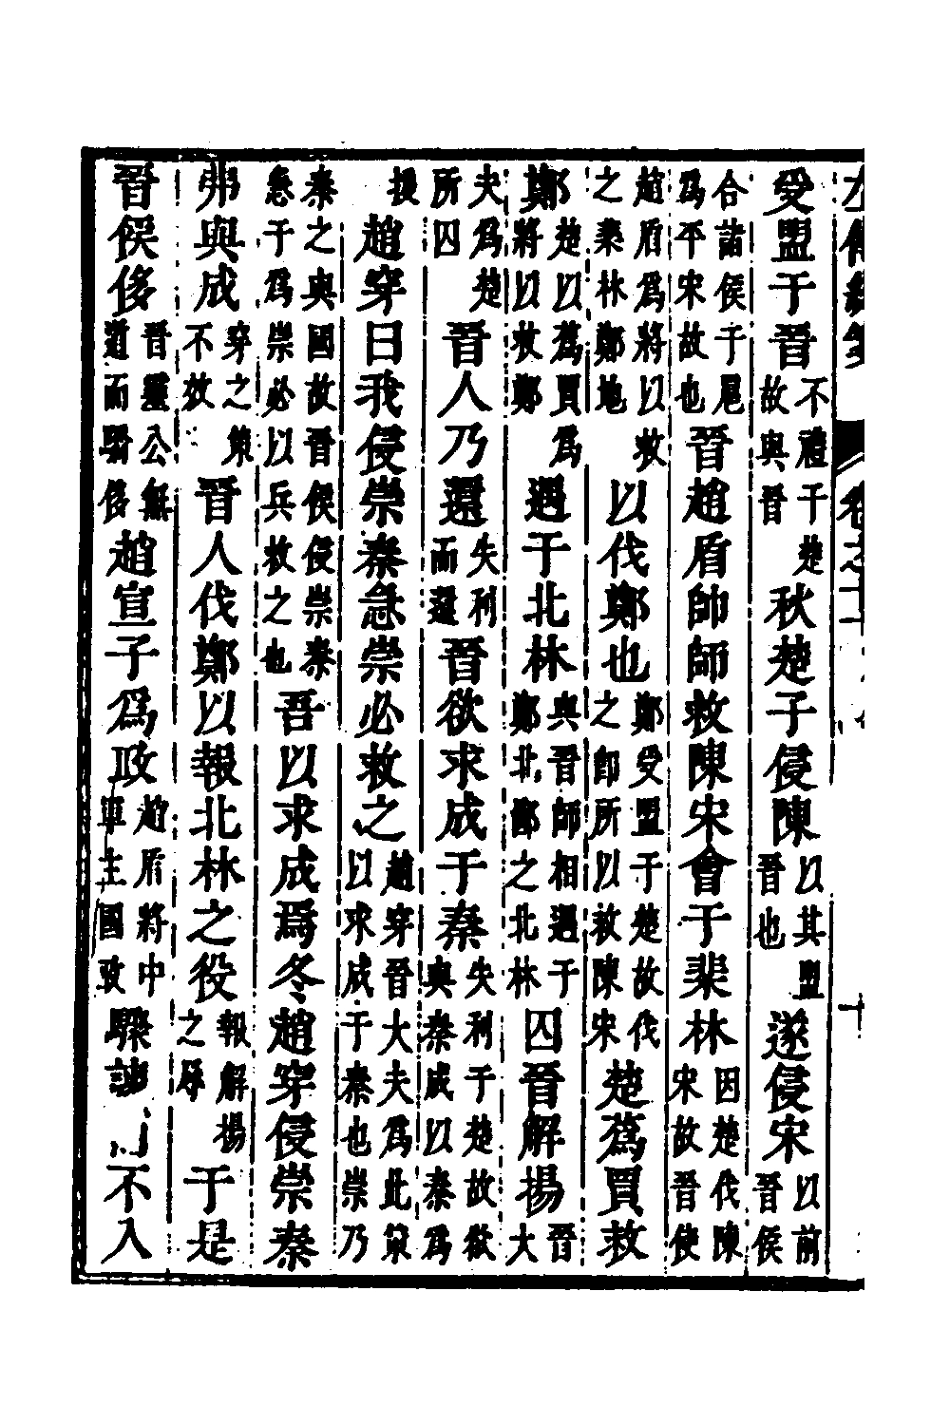 受盟于晉不禮于楚故與晉秋楚子侵陳以其盟晉也遂侵宋以前晉侯
合諸侯于扈為平宋故也晉趙盾師師救陳宋會于棐林因楚伐陳宋故晉使
趙盾為將以救之棐林鄭地以伐鄭也鄭受盟于楚故伐之卽所以救陳宋楚蒍賈救
鄭楚以蒍賈為將以救鄭遇于北林與晉師相遇于鄭北鄙之北林囚晉解揚晉大
夫為楚所囚晉人乃還失利而還晉欲求成于秦失利于楚故欲與秦成以秦為
援趙穿曰我侵崇秦急崇必救之趙穿晉大夫為此策以求成于秦也崇乃
秦之與國故晉侯侵崇秦急于為崇必以兵救之也吾以求成焉冬趙穿侵崇秦
弗與成穿之策不效晉人伐鄭以報北林之役報解揚之辱于是
晉侯侈晉靈公無道而驕侈趙宣子為政趙盾將中軍主國政驟諫不入